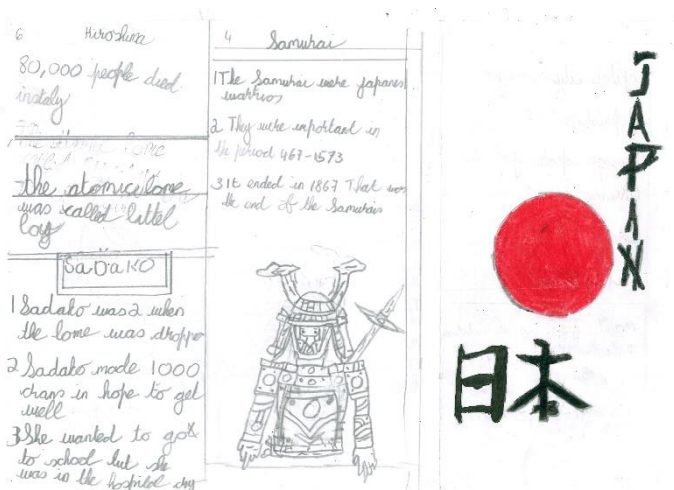 6 Hiroshima
80,000 people died
instaly
the atomic bome
was called littel
boy
SaDaKO
1 Sadako was 2 when
the bome was droppe
2 Sadako made 1000
in hope to get
well
3 She wanted to go
to school but she
was in the hospital
4 Samurai
1 The Samurai were japanes
warrios
2 They were inportant in
the period 467-1573
3 It ended in 1867 That was
the end of the Samurais
JAPAN
日本